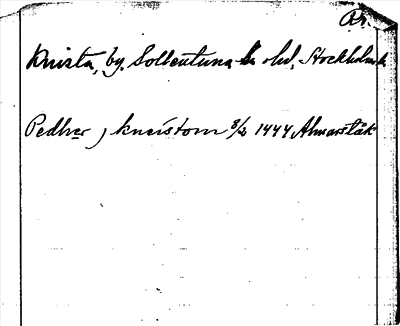 Knista, by, Sollentuna hd, Stockholms l.
Pedher j kneistom 8/2 1444 Almarstäk